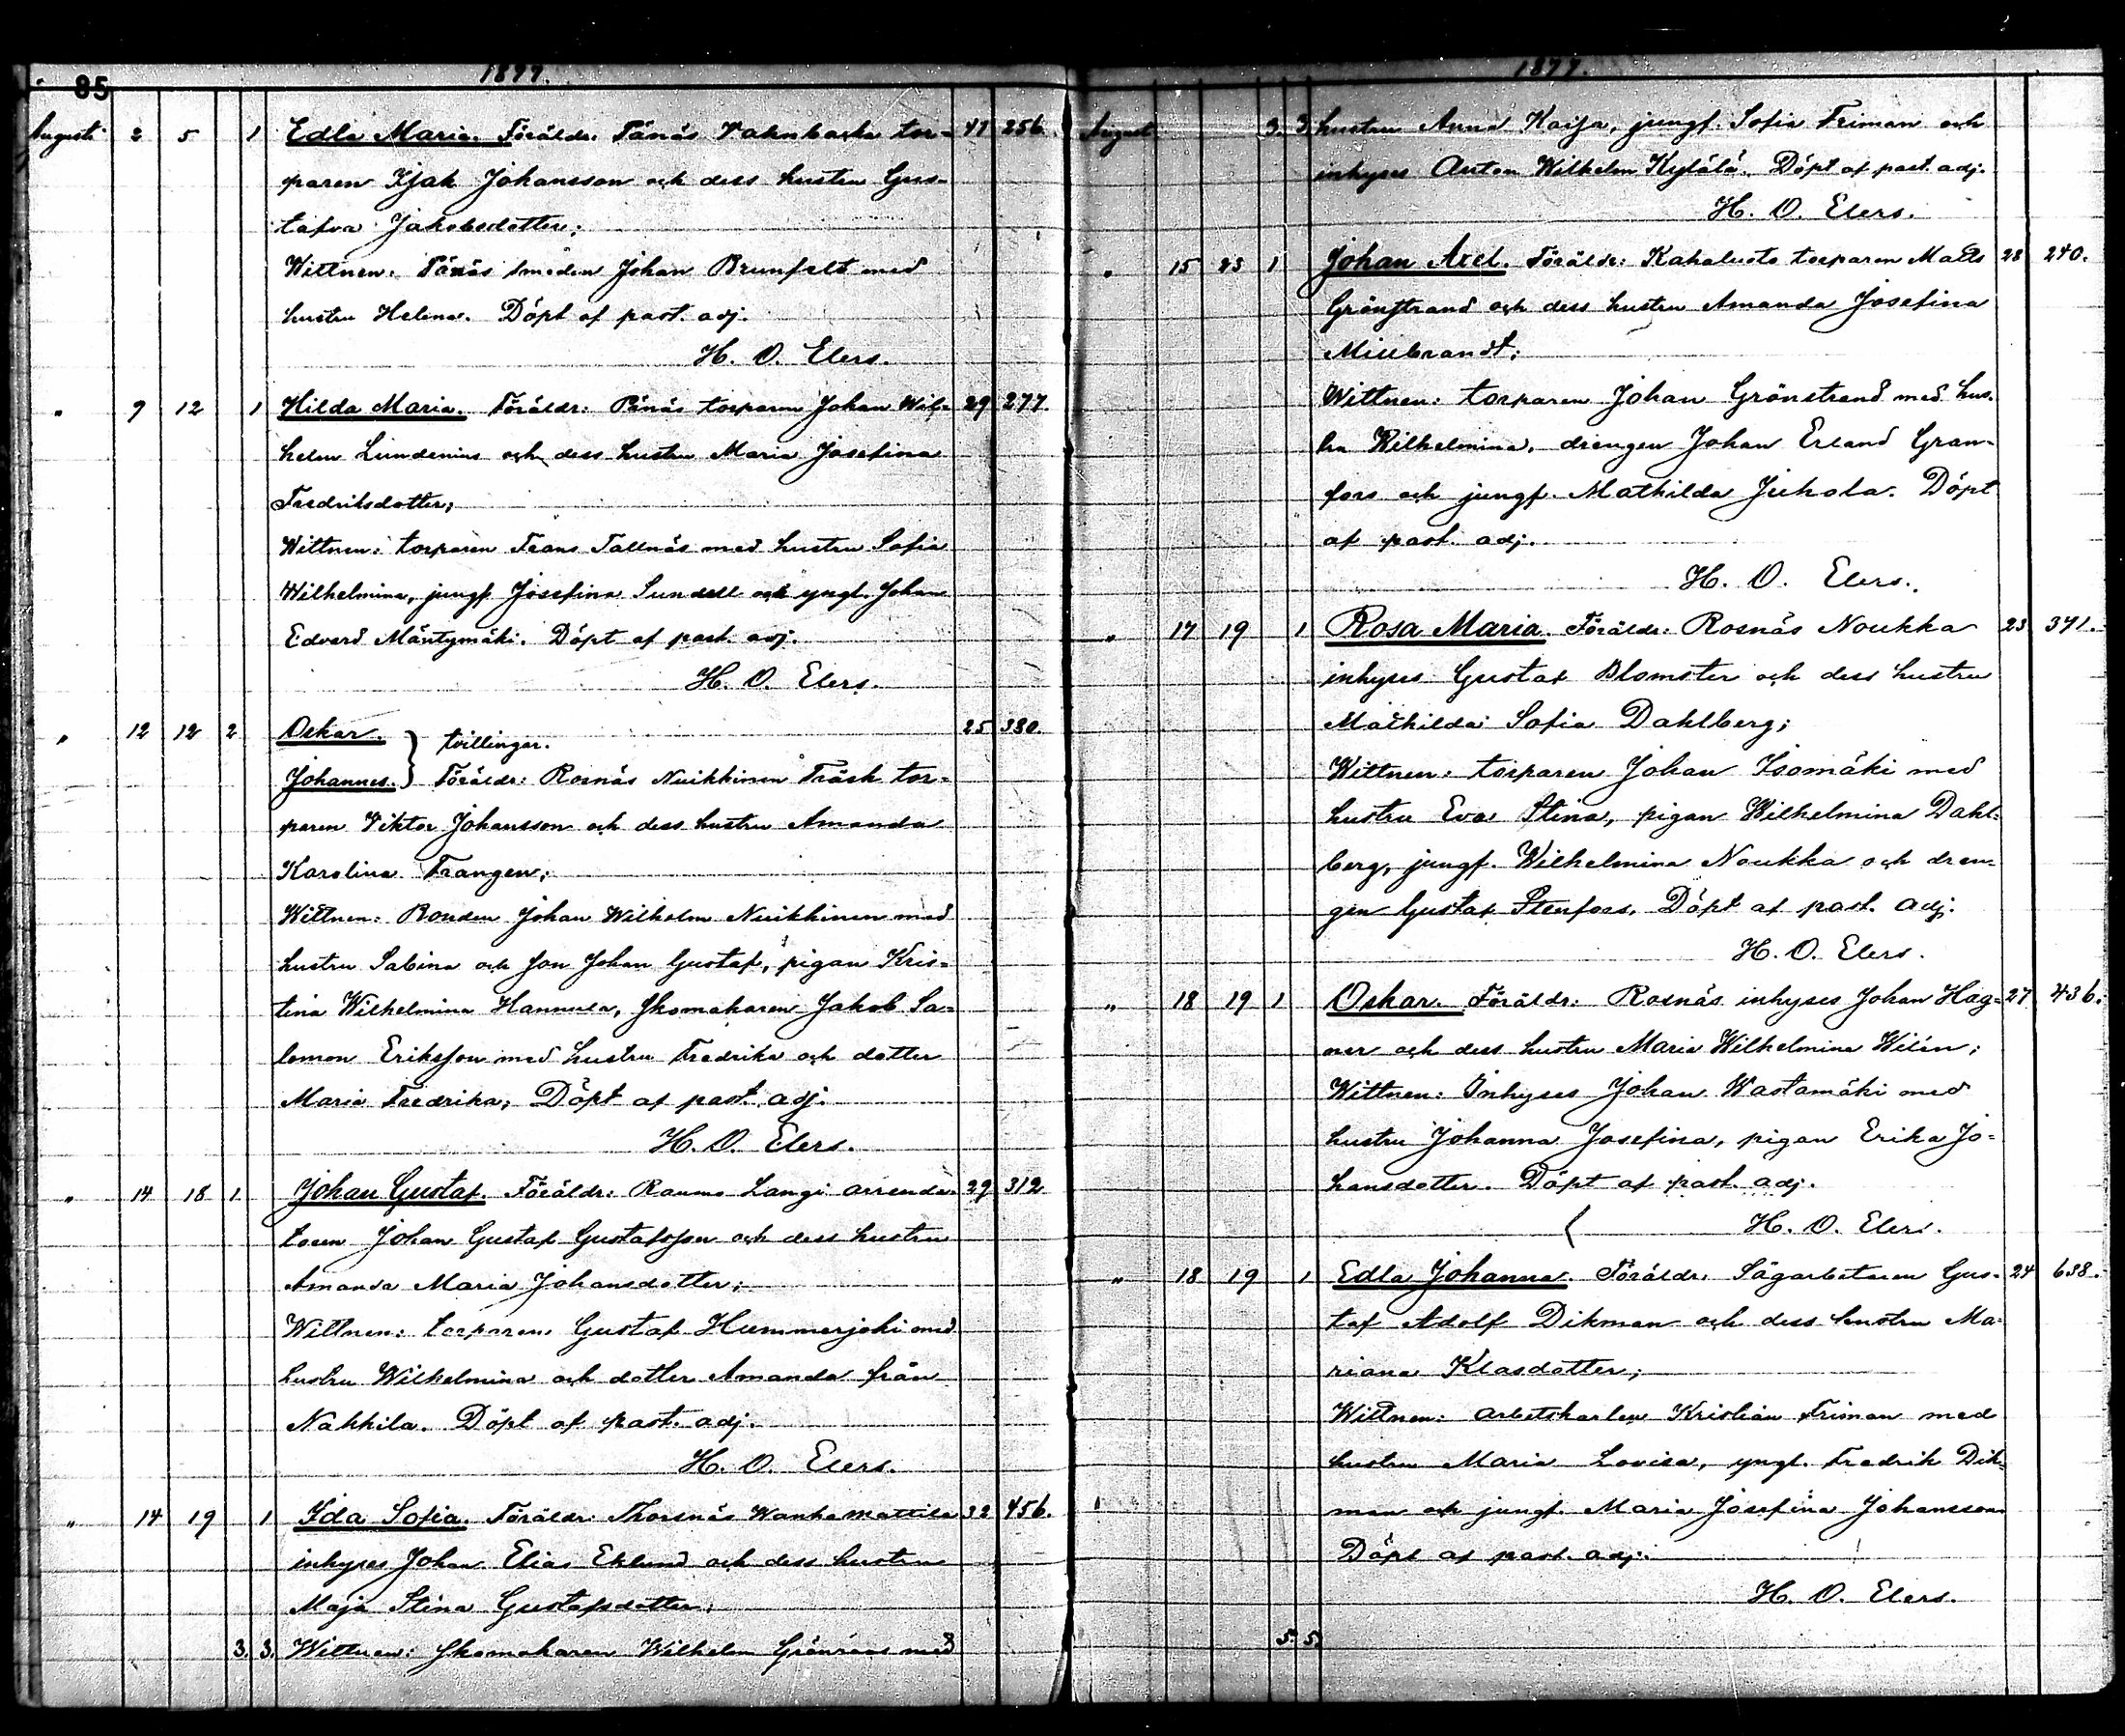 85
1877.
Augusti 2 5 1 Edla Maria. Föräldr: Tånäs tor- 41 256.
paren Isak Johansson och dess hustru Gus-
tafva Jakobsdotter;
Wittnen: Tånäs smeden Johan Brunfelt med
hustru Helena. Döpt af past. adj.
H. O. Elers.
" 9 12 1 Hilda Maria. Föräldr: torparen Johan Wil- 29 277.
helm Lundenius och dess hustru Maria Josefina
Fredriksdotter;
Wittnen: torparen Frans Tallnäs med hustru Sofia
Wilhelmina, jungf. Josefina Sundell och yngl. Johan
Edvard Mäntymäki. Döpt af past. adj.
H. O. Elers.
" 12 12 2 Oskar. } tvillingar. 25 380.
Johannes. } Föräldr: Rosnäs Nuikkinen Träsk tor-
paren Viktor Johansson och dess hustru Amanda
Karolina Frangen;
Wittnen: Bonden Johan Wilhelm Nuikkinen med
hustru Sabina och son Johan Gustaf, pigan Kris-
tina Wilhelmina Hannula, skomakaren Jakob Sa-
lomon Eriksson med hustru Fredrika och dotter
Maria Fredrika; Döpt af past. adj.
H. O. Elers.
" 14 18 1. Johan Gustaf. Föräldr: Raumo Langi arrenda- 29 312
toren Johan Gustaf Gustafsson och dess hustru
Amanda Maria Johansdotter;
Wittnen: torparen Gustaf Hummerjoki med
hustru Wilhelmina och dotter Amanda från
Nakkila. Döpt af past. adj.
H. O. Elers.
" 14 19 1 Ida Sofia. Föräldr: Thorsnäs Wanhamattila 32 456.
inhyses Johan Elias Eklund och dess hustru
Maja Stina Gustafsdotter;
3. 3. Wittnen: Skomakaren Wilhelm Grönroos med
1877.
August 3. 3. hustru Anna Kaisa, jungf. Sofia Friman och
inhyses Anton Wilhelm Kylälä. Döpt af past. adj.
H. O. Elers.
" 15 23 1 Johan Axel. Föräldr: Kahaluoto torparen Matts 28 240.
Grönstrand och dess hustru Amanda Josefina
Millbrandt;
Wittnen: torparen Johan Grönstrand med hus-
tru Wilhelmina, drengen Johan Erland Gran-
fors och jungf. Mathilda Juhola. Döpt
af past. adj.
H. O. Elers.
" 17 19 1 Rosa Maria. Föräldr: Rosnäs Noukka 23 371.
inhyses Gustaf Blomster och dess hustru
Mathilda Sofia Dahlberg;
Wittnen: torparen Johan Isomäki med
hustru Eva Stina, pigan Wilhelmina Dahl-
berg, jungf. Wilhelmina Noukka och dren-
gen Gustaf Stenfors. Döpt af past. adj.
H. O. Elers.
" 18 19 1 Oskar. Föräldr: Rosnäs inhyses Johan Hag- 27 436.
ner och dess hustru Maria Wilhelmina Wilén;
Wittnen: Inhyses Johan Wastamäki med
hustru Johanna Josefina, pigan Erika Jo-
hansdotter. Döpt af past. adj.
H. O. Elers.
" 18 19 1 Edla Johanna. Föräldr: Sågarbetaren Gus- 24 638.
taf Adolf Dikman och dess hustru Ma-
riana Klasdotter;
Wittnen: arbetskarlen Kristian Friman med
hustru Maria Lovisa, yngl. Fredrik Dik-
man och jungf. Maria Josefina Johansson.
Döpt af past. adj.
H. O. Elers.
5. 5.